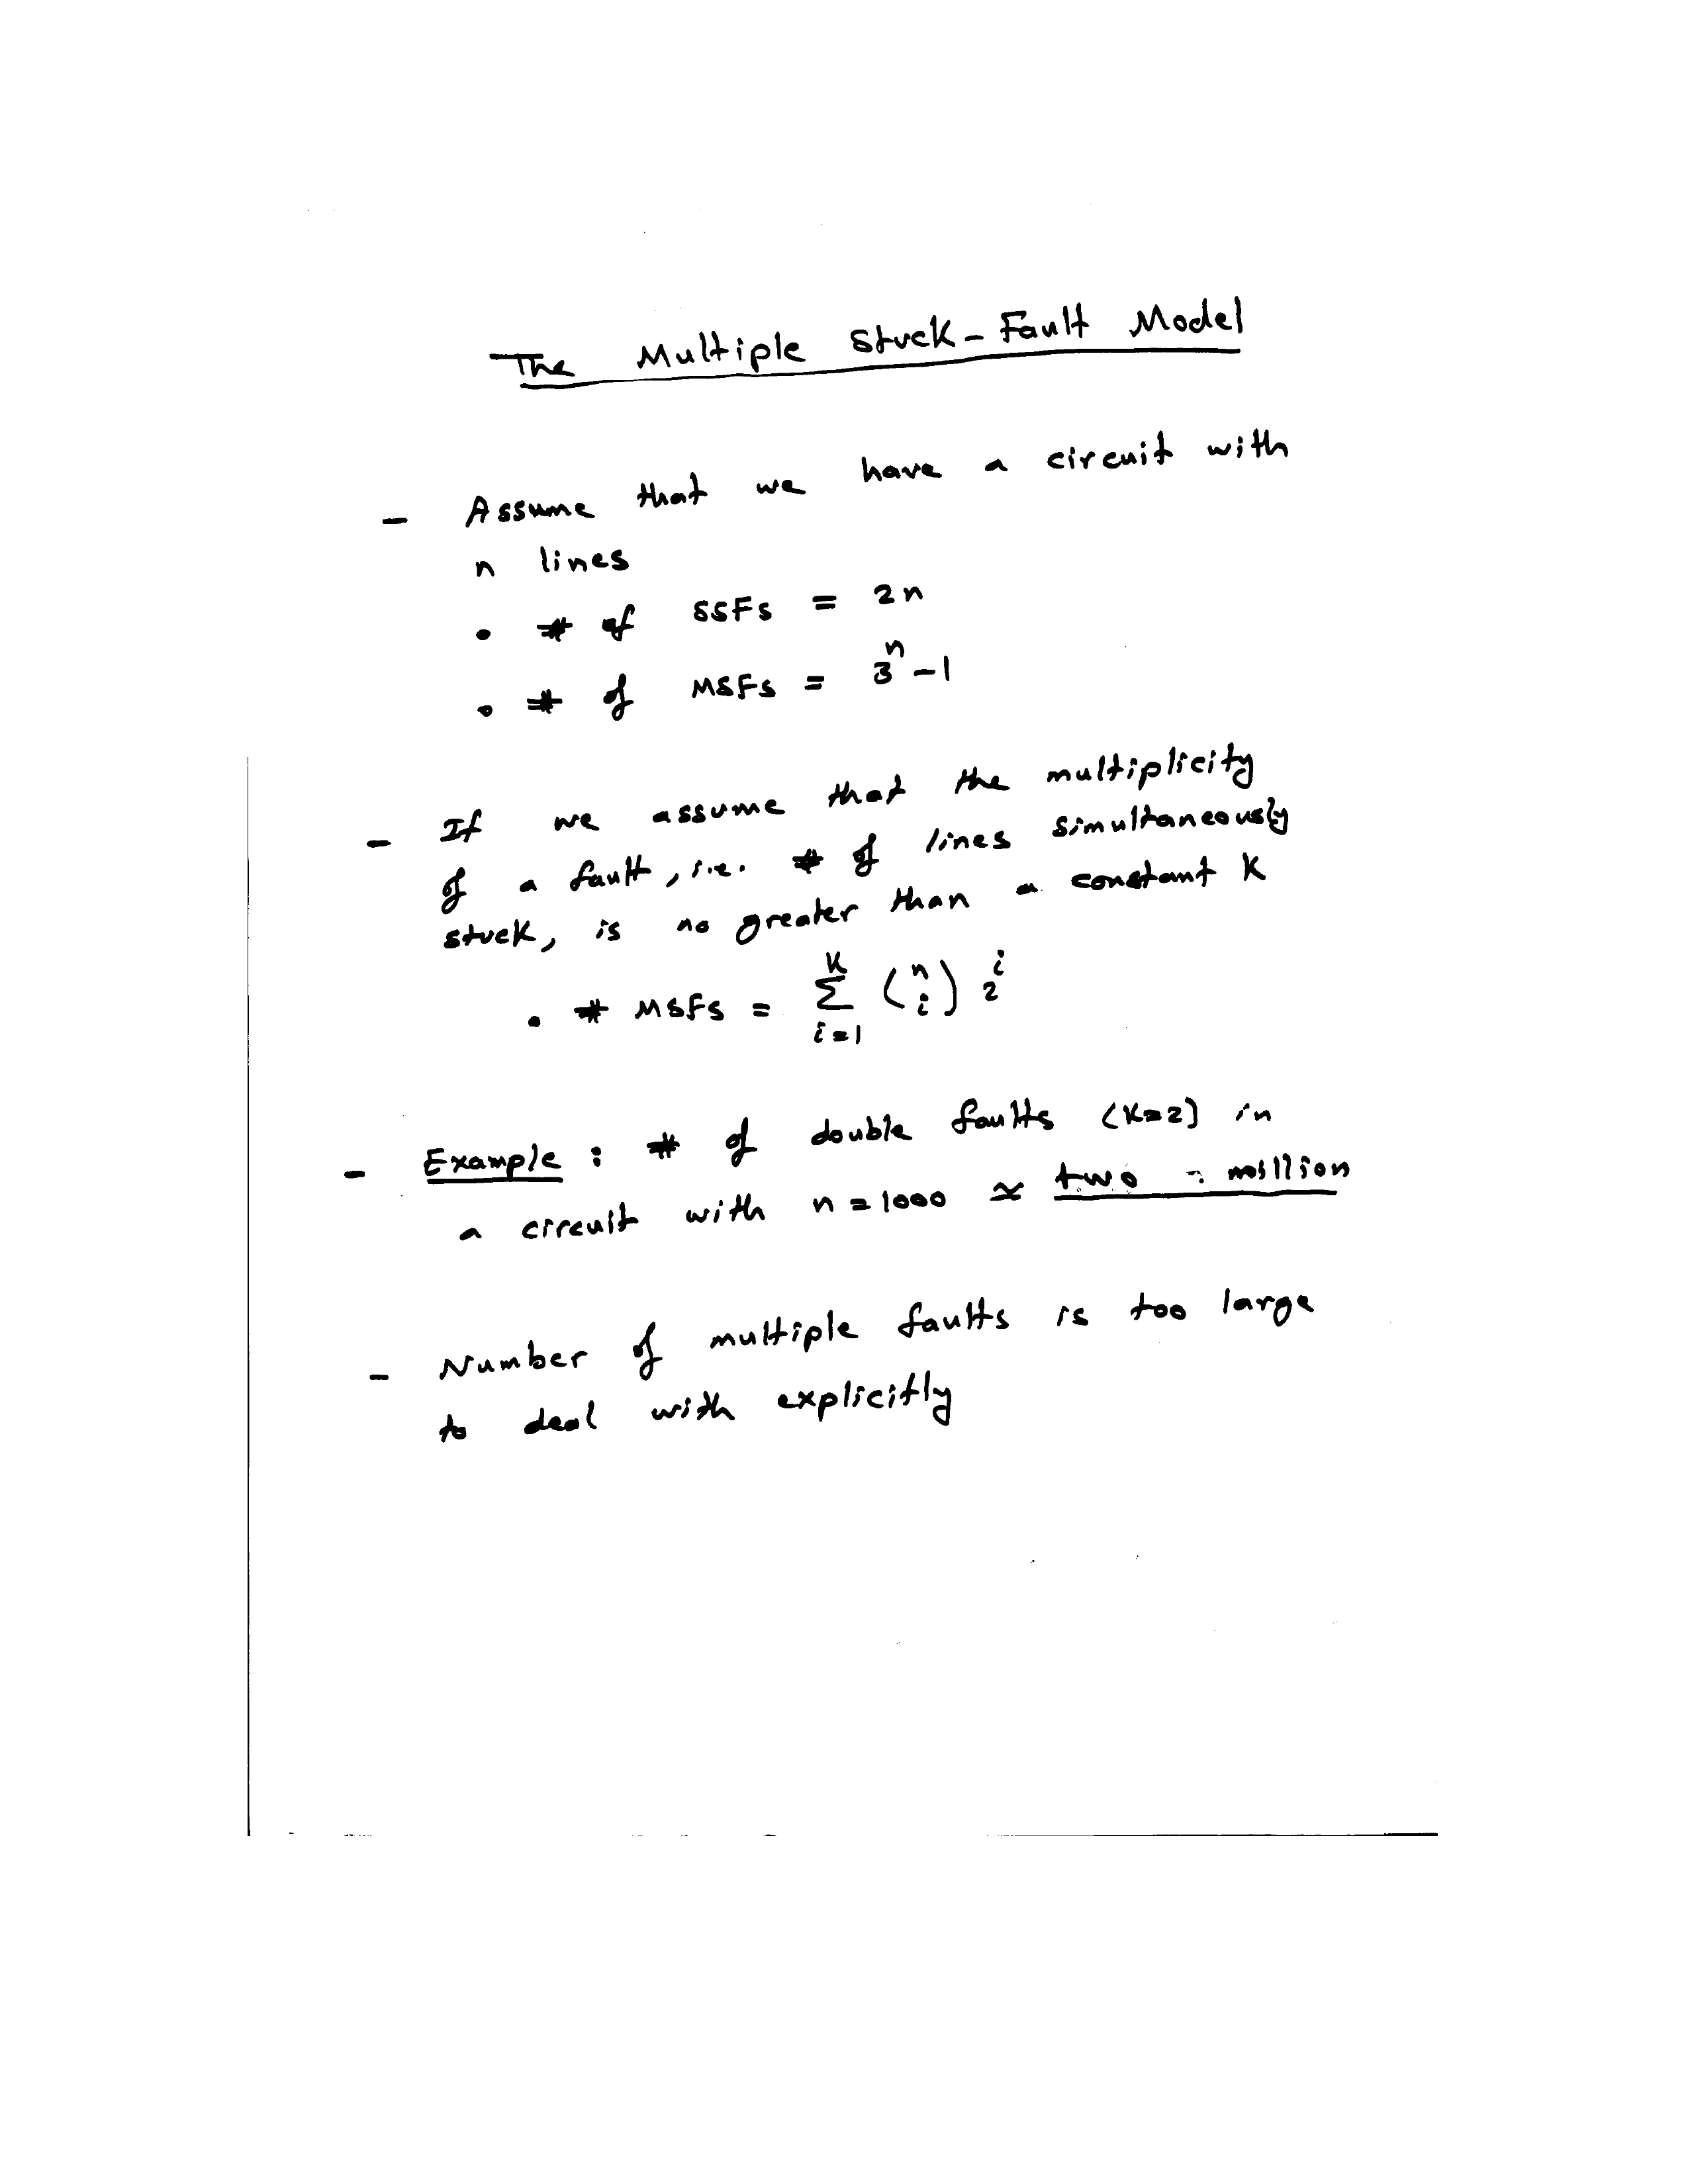 The Multiple Stuck-Fault Model
- Assume that we have a circuit with
n lines
• # of SSFs = 2n
• # of MSFs = 3^n - 1
- If we assume that the multiplicity
of a fault, i.e. # of lines simultaneously
stuck, is no greater than a constant K
• # MSFs = \sum_{i=1}^{K} \binom{n}{i} 2^i
- Example : # of double faults (K=2) in
a circuit with n = 1000 ≃ two million
- Number of multiple faults is too large
to deal with explicitly